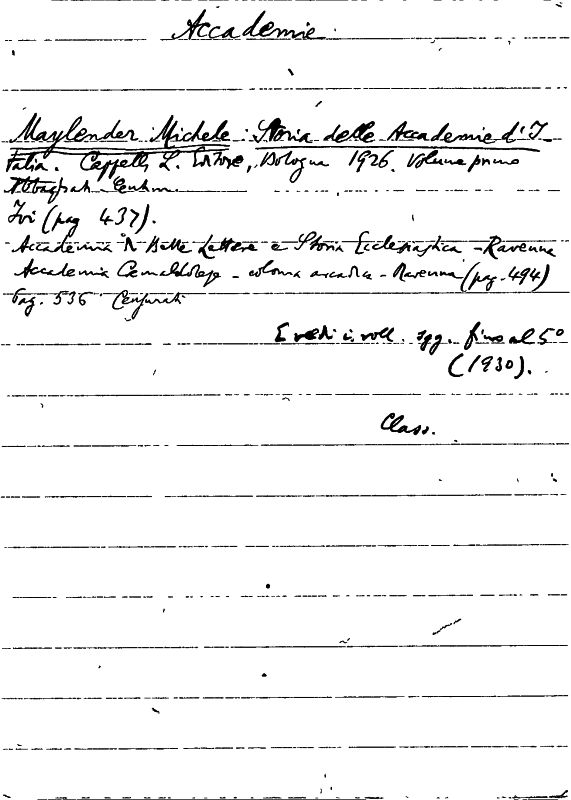 Accademie
Maylender Michele: Storia delle Accademie d'I-
talia. Cappelli, L. Editore, Bologna 1926. Volume primo
Abbagliati - Centini.
Ivi (pag 437).
Accademia di Belle Lettere e Storia Ecclesiastica - Ravenna
Accademia Camaldolese - colonia arcadica - Ravenna (pag. 494)
Pag. 536 Censurati
E vedi i voll. sgg. fino al 5º
(1930).
Class.